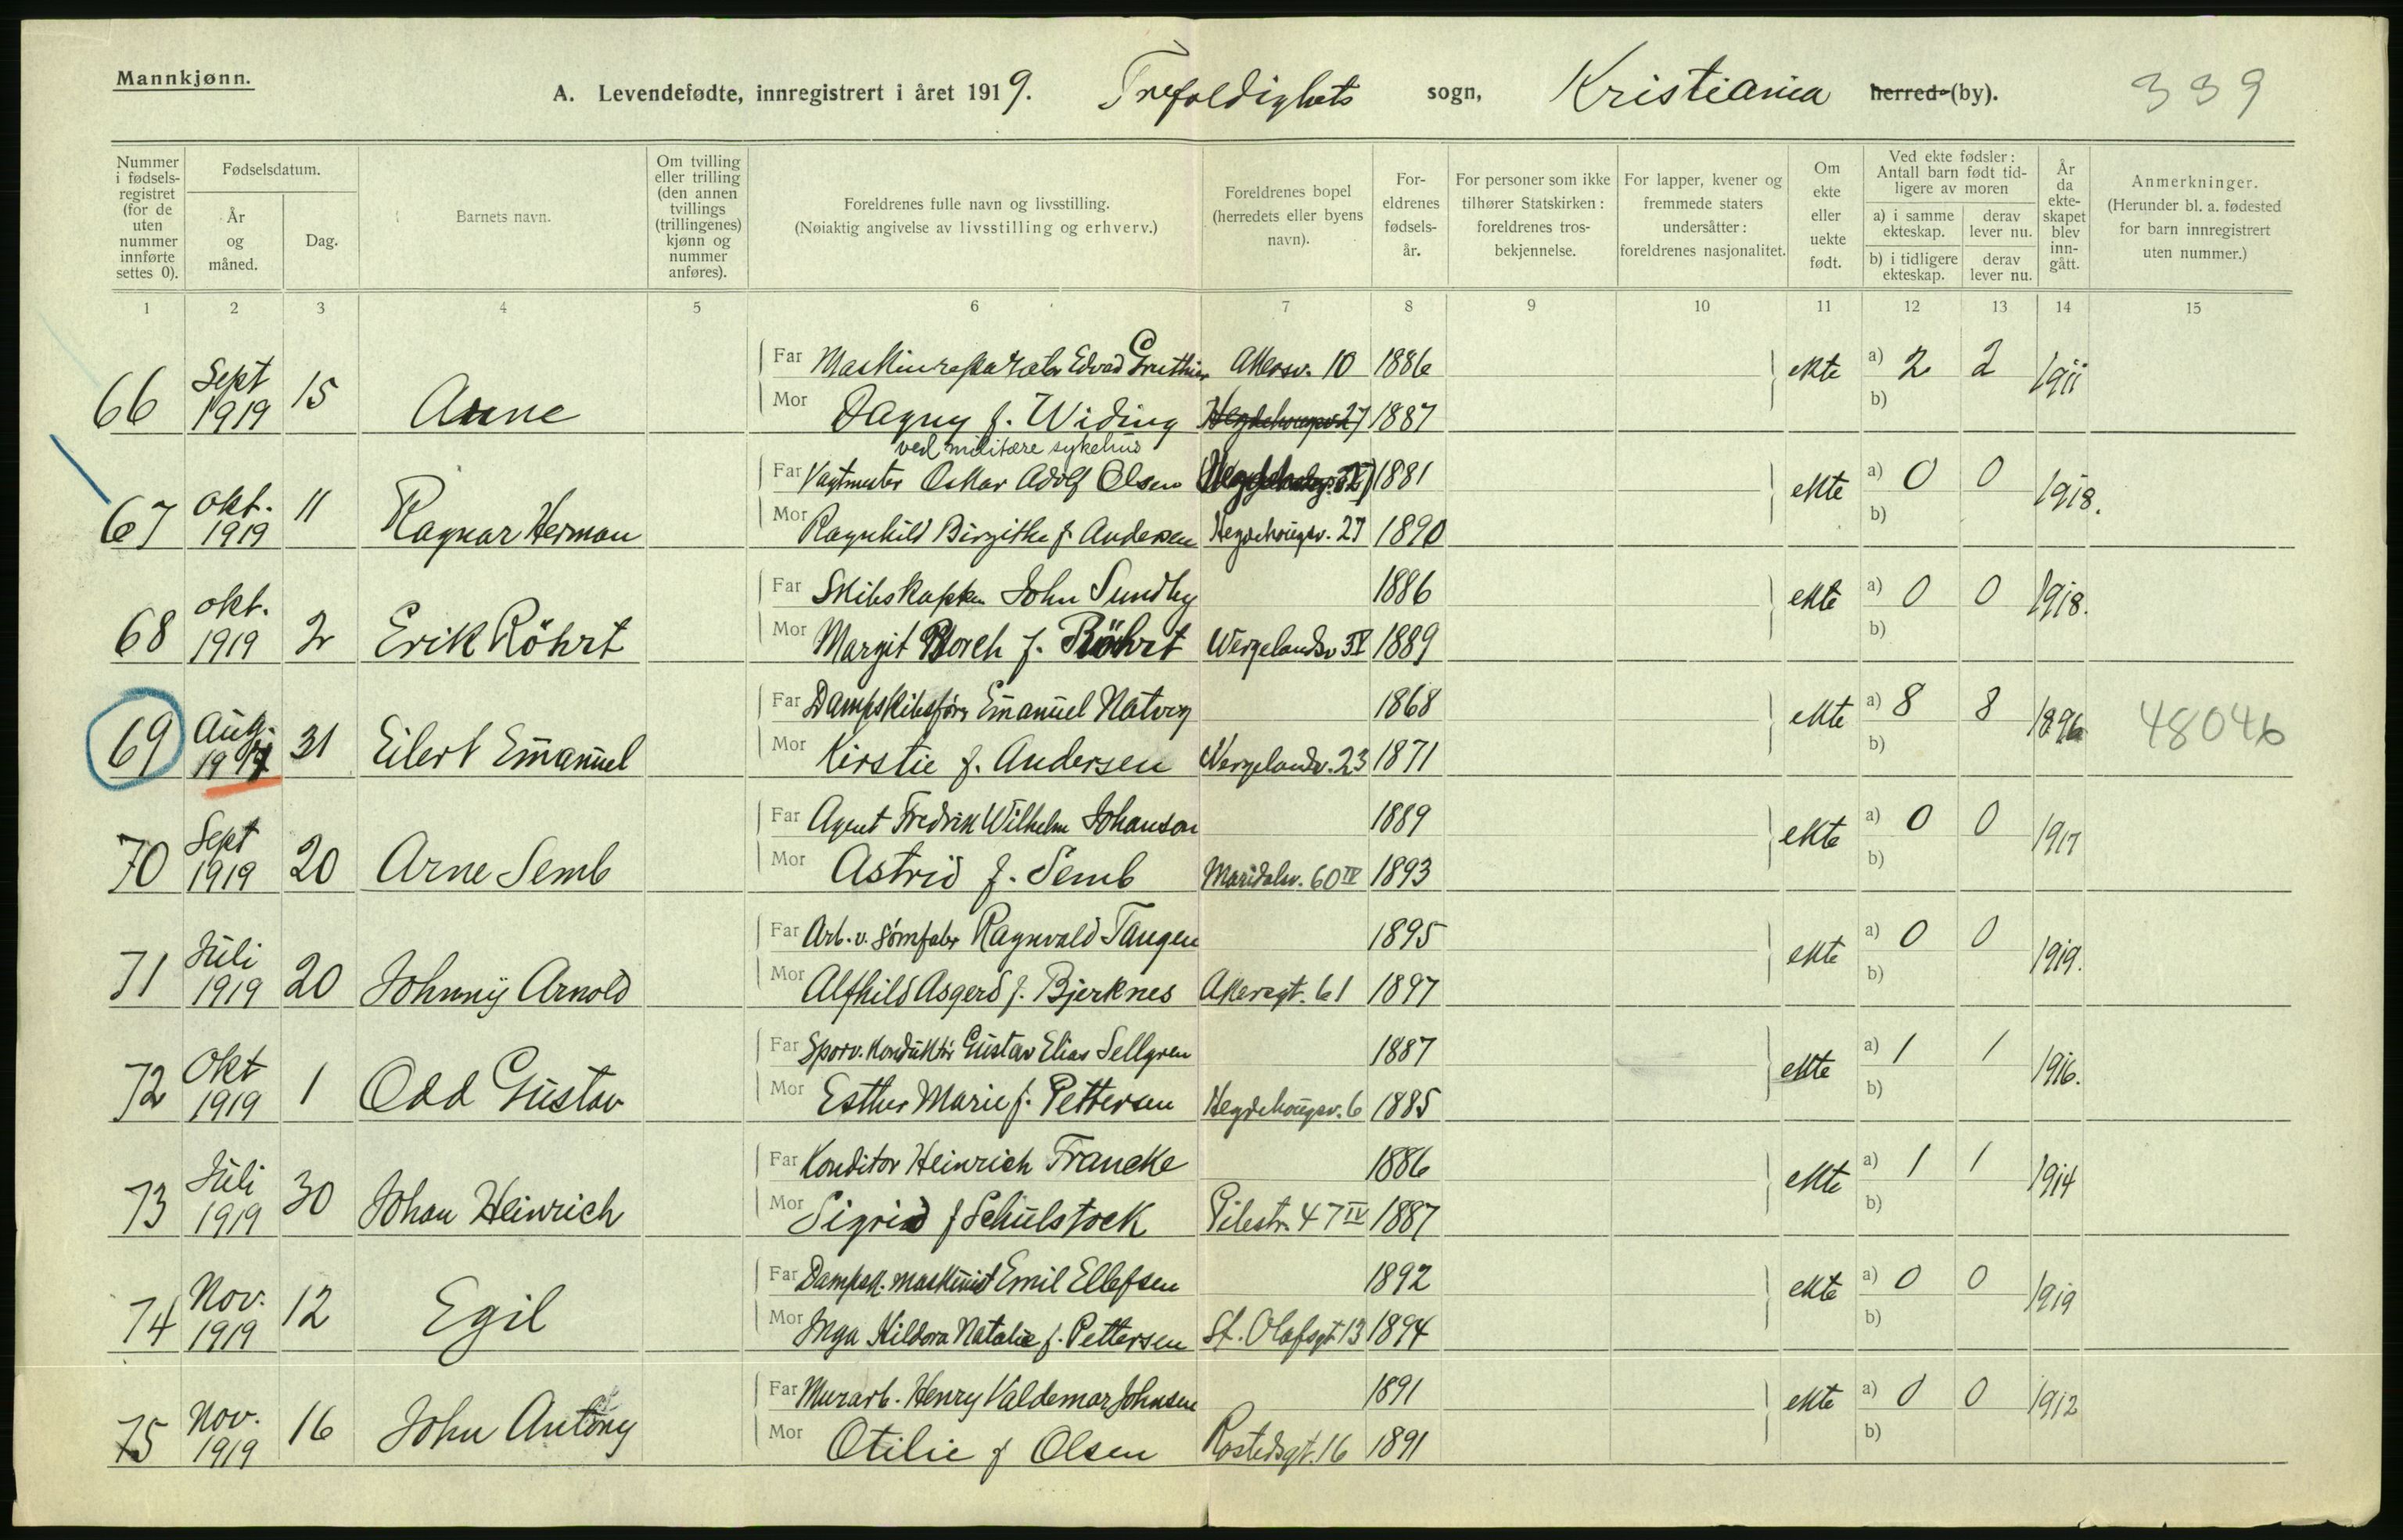 Mannkjønn.
A. Levendefødte, innregistrert i året 1919. Trefoldighets sogn, Kristiania herred (by). 339
Nummer i fødsels-registret (for de uten nummer innførte settes 0).
Fødselsdatum.
År og måned.
Dag.
Barnets navn.
Om tvilling eller trilling (den annen tvillings (trillingenes) kjønn og nummer anføres).
Foreldrenes fulle navn og livsstilling.
(Nøiaktig angivelse av livsstilling og erhverv.)
Foreldrenes bopel (herredets eller byens navn).
For-eldrenes fødsels-år.
For personer som ikke tilhører Statskirken: foreldrenes tros-bekjennelse.
For lapper, kvener og fremmede staters undersåtter: foreldrenes nasjonalitet.
Om ekte eller uekte født.
Ved ekte fødsler: Antall barn født tid-ligere av moren
a) i samme ekteskap. derav lever nu.
b) i tidligere ekteskap. derav lever nu.
År da ekte-skapet blev inn-gått.
Anmerkninger.
(Herunder bl. a. fødested for barn innregistrert uten nummer.)
1 2 3 4 5 6 7 8 9 10 11 12 13 14 15
66 Sept 1919 15 Arne
Far Maskinreparatør Edvard Akersv. 10 1886 ekte a) 2 2 1911
Mor Dagny f. Widing Hegdehougsv. 27 1887 b)
ved militære sykehus
67 Okt. 1919 11 Ragnar Herman
Far Vagtmester Oskar Adolf Olsen 1881 ekte a) 0 0 1918.
Mor Ragnhild Birgithe f. Andersen Hegdehougsv. 27 1890 b)
68 Okt. 1919 2 Erik Röhrt
Far Skibskapten John Sundby 1886 ekte a) 0 0 1918.
Mor Margit Borch f. Röhrt Wergelandsv 1889 b)
69 Aug. 31 Eilert Emanuel
Far Dampskibsfører Emanuel Natvig 1868 ekte a) 8 8 1896 48046
Mor Kirstie f. Andersen Wergelandsv. 23 1871 b)
70 Sept 1919 20 Arne Semb
Far Agent Fredrik Wilhelm Johanson 1889 ekte a) 0 0 1917
Mor Astrid f. Semb Maridalsv. 60 IV 1893 b)
71 Juli 1919 20 Johnny Arnold
Far Arb. v. sømfabr Ragnvald Tangen 1895 ekte a) 0 0 1919.
Mor Alfhild Asgerd f. Bjerknes Akersgt. 61 1897 b)
72 Okt 1919 1 Odd Gustav
Far Sporv. konduktør Gustav Elias Sellgren 1887 ekte a) 1 1 1916.
Mor Esther Marie f. Pettersen Hegdehougsv. 6 1885 b)
73 Juli 1919 30 Johan Heinrich
Far Konditor Heinrich Francke 1886 ekte a) 1 1 1914
Mor Sigrid f Schulstock Pilestr. 47 IV 1887 b)
74 Nov. 1919 12 Egil
Far Dampsk. maskinist Emil Ellefsen 1892 ekte a) 0 0 1919
Mor Inga Hildora Natalie f. Pettersen St. Olafsgt. 13 1894 b)
75 Nov. 1919 16 John Antony
Far Murarb. Henry Valdemar Johnsen 1891 ekte a) 0 0 1912
Mor Otilie f Olsen Rostedsgt. 16 1891 b)